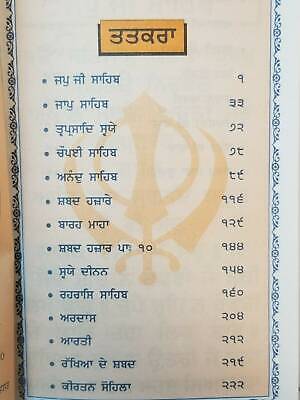 ਤਤਕਰਾ
• ਜਪੁ ਜੀ ਸਾਹਿਬ ੧
• ਜਾਪੁ ਸਾਹਿਬ ੩੩
• ਤ੍ਵਪ੍ਰਸਾਦਿ ਸ੍ਵਯੇ ੭੨
• ਚੌਪਈ ਸਾਹਿਬ ੭੮
• ਅਨੰਦੁ ਸਾਹਿਬ ੮੯
• ਸ਼ਬਦ ਹਜ਼ਾਰ ੧੧੬
• ਬਾਰਹ ਮਾਹਾ ੧੨੯
• ਸ਼ਬਦ ਹਜ਼ਾਰ ਪਾ: ੧੦ ੧੪੪
• ਸ੍ਵਯੇ ਦੀਨਨ ੧੫੪
• ਰਹਰਾਸਿ ਸਾਹਿਬ ੧੬੦
• ਅਰਦਾਸ ੨੦੪
• ਆਰਤੀ ੨੧੨
• ਰੱਖਿਆ ਦੇ ਸ਼ਬਦ ੨੧੯
• ਕੀਰਤਨ ਸੋਹਿਲਾ ੨੨੨